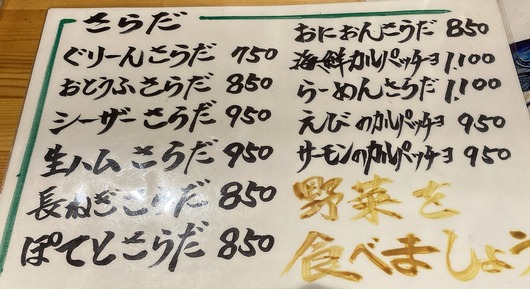 さらだ
ぐりーんさらだ 750
おとうふさらだ 850
シーザーさらだ 950
生ハムさらだ 950
長ねぎさらだ 850
ぽてとさらだ 850
おにおんさらだ 850
海鮮カルパッチョ 1,100
らーめんさらだ 1,100
えびのカルパッチョ 950
サーモンのカルパッチョ 950
野菜を
食べましょう